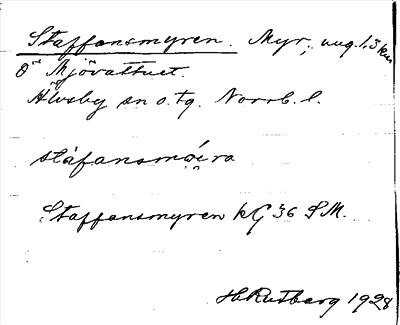 Staffansmyren. Myr, ung. 1,3 km
Ö Mjövattnet.
Älvsby sn o. tg. Norrb. l.
Staffansmyren kG 36 SM.
H Rutberg 1928